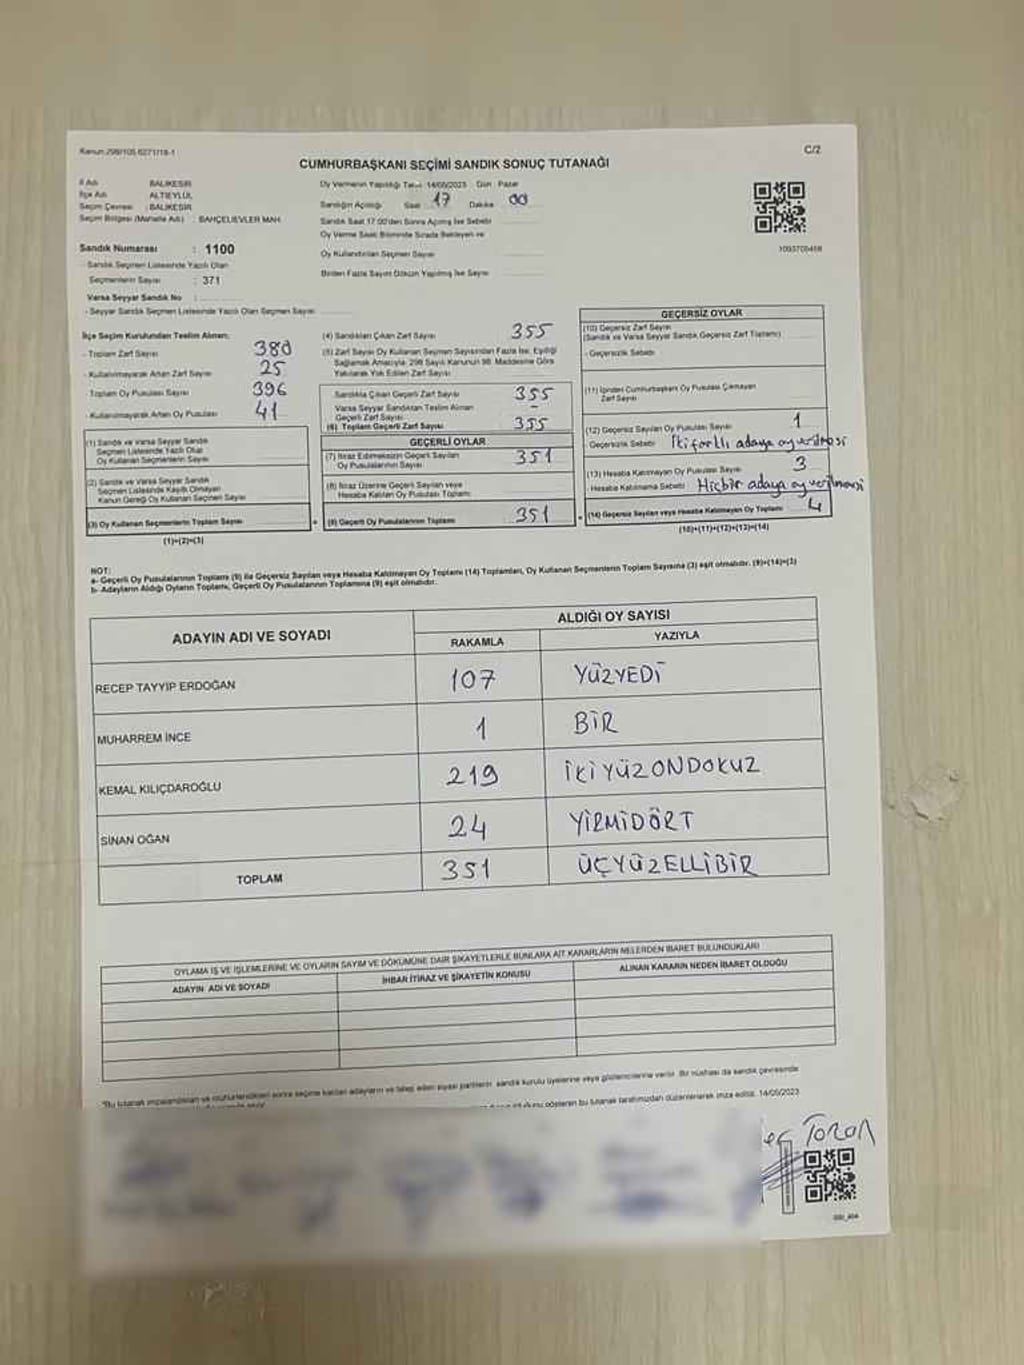 Kanun:298/105.6271/18-1
C/2
CUMHURBAŞKANI SEÇİMİ SANDIK SONUÇ TUTANAĞI
İl Adı : BALIKESİR
İlçe Adı : ALTIEYLÜL
Seçim Çevresi : BALIKESİR
Seçim Bölgesi (Mahalle Adı) : BAHÇELİEVLER MAH.
Sandık Numarası : 1100
- Sandık Seçmen Listesinde Yazılı Olan
Seçmenlerin Sayısı : 371
Varsa Seyyar Sandık No :
- Seyyar Sandık Seçmen Listesinde Yazılı Olan Seçmen Sayısı:
Oy Vermenin Yapıldığı Tarih: 14/05/2023 Gün: Pazar
Sandığın Açıldığı Saat 17 Dakika 00
Sandık Saat 17:00'den Sonra Açılmış İse Sebebi
Oy Verme Saati Bitiminde Sırada Bekleyen ve
Oy Kullandırılan Seçmen Sayısı
Birden Fazla Sayım Döküm Yapılmış İse Sayısı
İlçe Seçim Kurulundan Teslim Alınan;
- Toplam Zarf Sayısı 380
- Kullanılmayarak Artan Zarf Sayısı 25
- Toplam Oy Pusulası Sayısı 396
- Kullanılmayarak Artan Oy Pusulası 41
(1) Sandık ve Varsa Seyyar Sandık
Seçmen Listesinde Yazılı Olup
Oy Kullanan Seçmenlerin Sayısı
(2) Sandık ve Varsa Seyyar Sandık
Seçmen Listesinde Kayıtlı Olmayan
Kanun Gereği Oy Kullanan Seçmen Sayısı
(3) Oy Kullanan Seçmenlerin Toplam Sayısı
(1)+(2)=(3)
(4) Sandıktan Çıkan Zarf Sayısı 355
(5) Zarf Sayısı Oy Kullanan Seçmen Sayısından Fazla İse, Eşitliği
Sağlamak Amacıyla, 298 Sayılı Kanunun 98. Maddesine Göre
Yakılarak Yok Edilen Zarf Sayısı
Sandıkta Çıkan Geçerli Zarf Sayısı 355
Varsa Seyyar Sandıktan Teslim Alınan
Geçerli Zarf Sayısı -
(6) Toplam Geçerli Zarf Sayısı 355
GEÇERLİ OYLAR
(7) İtiraz Edilmeksizin Geçerli Sayılan
Oy Pusulalarının Sayısı 351
(8) İtiraz Üzerine Geçerli Sayılan veya
Hesaba Katılan Oy Pusulası Toplamı
(9) Geçerli Oy Pusulalarının Toplamı 351
GEÇERSİZ OYLAR
(10) Geçersiz Zarf Sayısı
(Sandık ve Varsa Seyyar Sandık Geçersiz Zarf Toplamı)
- Geçersizlik Sebebi
(11) İçinden Cumhurbaşkanı Oy Pusulası Çıkmayan
Zarf Sayısı
(12) Geçersiz Sayılan Oy Pusulası Sayısı 1
- Geçersizlik Sebebi İki farklı adaya oy verilmesi
(13) Hesaba Katılmayan Oy Pusulası Sayısı 3
- Hesaba Katılmama Sebebi Hiçbir adaya oy verilmesi
(14) Geçersiz Sayılan veya Hesaba Katılmayan Oy Toplamı 4
(10)+(11)+(12)+(13)=(14)
NOT:
a- Geçerli Oy Pusulalarının Toplamı (9) ile Geçersiz Sayılan veya Hesaba Katılmayan Oy Toplamı (14) Toplamları, Oy Kullanan Seçmenlerin Toplam Sayısına (3) eşit olmalıdır. (9)+(14)=(3)
b- Adayların Aldığı Oyların Toplamı, Geçerli Oy Pusulalarının Toplamına (9) eşit olmalıdır.
ADAYIN ADI VE SOYADI
ALDIĞI OY SAYISI
RAKAMLA YAZIYLA
RECEP TAYYİP ERDOĞAN 107 YÜZYEDİ
MUHARREM İNCE 1 BİR
KEMAL KILIÇDAROĞLU 219 İKİYÜZONDOKUZ
SİNAN OĞAN 24 YİRMİDÖRT
TOPLAM 351 ÜÇYÜZELLİBİR
OYLAMA İŞ VE İŞLEMLERİNE VE OYLARIN SAYIM VE DÖKÜMÜNE DAİR ŞİKAYETLERLE BUNLARA AİT KARARLARIN NELERDEN İBARET BULUNDUKLARI
ADAYIN ADI VE SOYADI
İHBAR İTİRAZ VE ŞİKAYETİN KONUSU
ALINAN KARARIN NEDEN İBARET OLDUĞU
"Bu tutanak imzalandıktan ve mühürlendikten sonra seçime katılan adayların ve talep eden siyasi partilerin sandık kurulu üyelerine veya gözlemcilerine verilir. Bir nüshası da sandık çevresinde
bu tutanak tarafımızdan düzenlenerek imza edildi. 14/05/2023